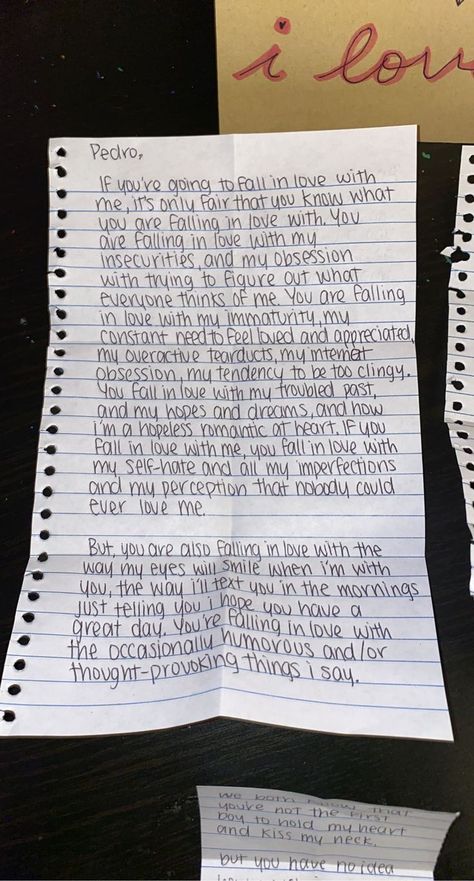 i lov
Pedro,
If you're going to fall in love with
me, it's only fair that you know what
you are falling in love with. You
are falling in love with my
insecurities, and my obsession
with trying to figure out what
everyone thinks of me. You are falling
in love with my immaturity, my
constant need to feel loved and appreciated,
my overactive tearducts, my internet
obsession, my tendency to be too clingy.
You fall in love with my troubled past,
and my hopes and dreams, and how
i'm a hopeless romantic at heart. If you
fall in love with me, you fall in love with
my self-hate and all my imperfections
and my perception that nobody could
ever love me.
But, you are also falling in love with the
way my eyes will smile when i'm with
you, the way i'll text you in the mornings
just telling you i hope you have a
great day. You're falling in love with
the occasionally humorous and/or
thought-provoking things i say.
we both know that
you're not the first
boy to hold my heart
and kiss my neck.
but you have no idea